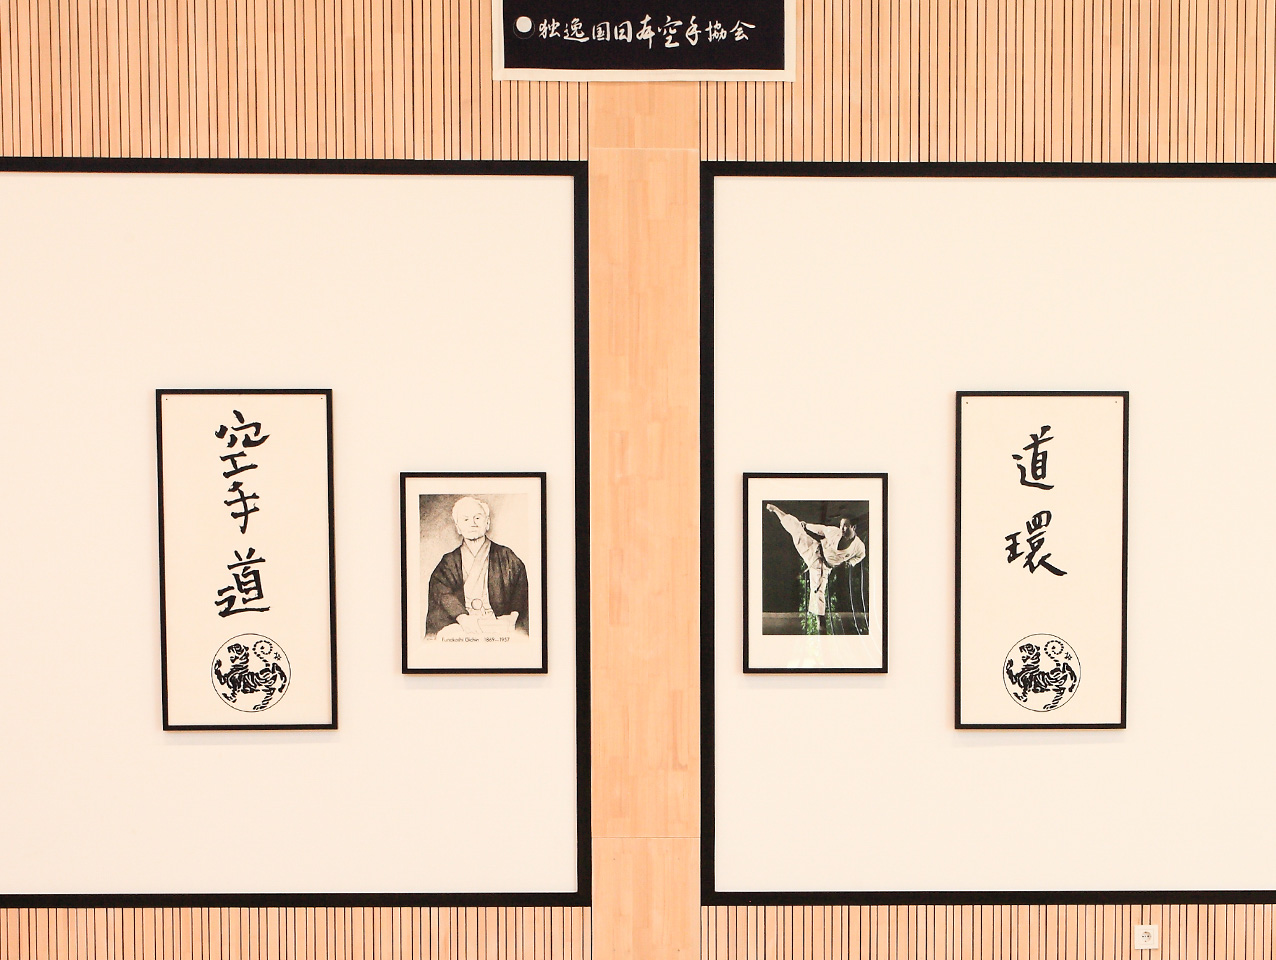 独逸国日本空手協会
空手道
Funakoshi Gichin 1869–1957
道環